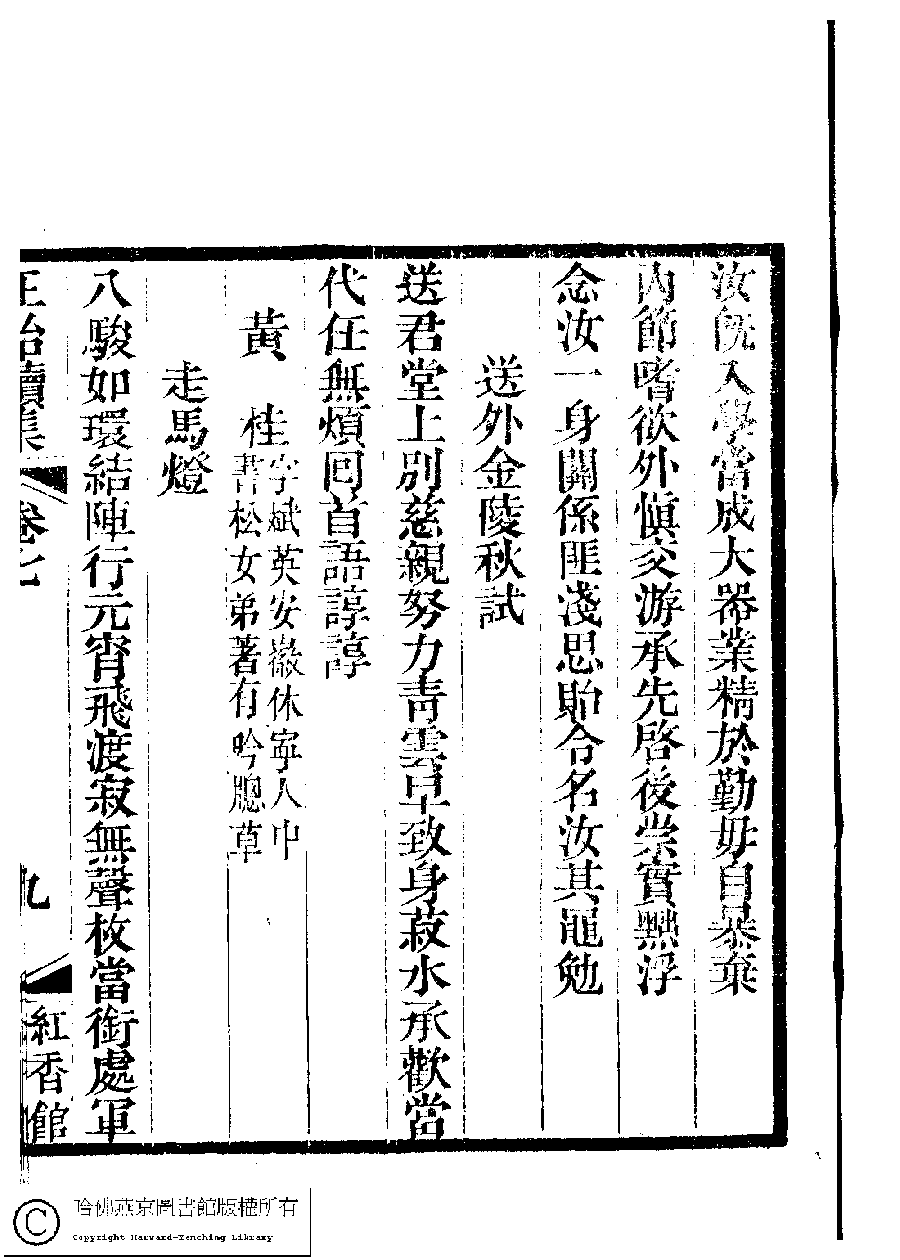 汝旣入學當成大器業精於勤毋自暴棄
內節嗜欲外愼交游承先啓後崇實黜浮
念汝一身關係匪淺思貽令名汝其黽勉
送外金陵秋試
送君堂上別慈親努力靑雲早致身菽水承歡當
代任無煩囘首語諄諄
黃桂
字斌英安徽休寧人中
書松女弟著有吟牕草
走馬燈
八駿如環結陣行元宵飛渡寂無聲枚當銜處軍
正始續集
卷七
九
紅香館
哈佛燕京圖書館版權所有
Copyright Harvard-Yenching Library